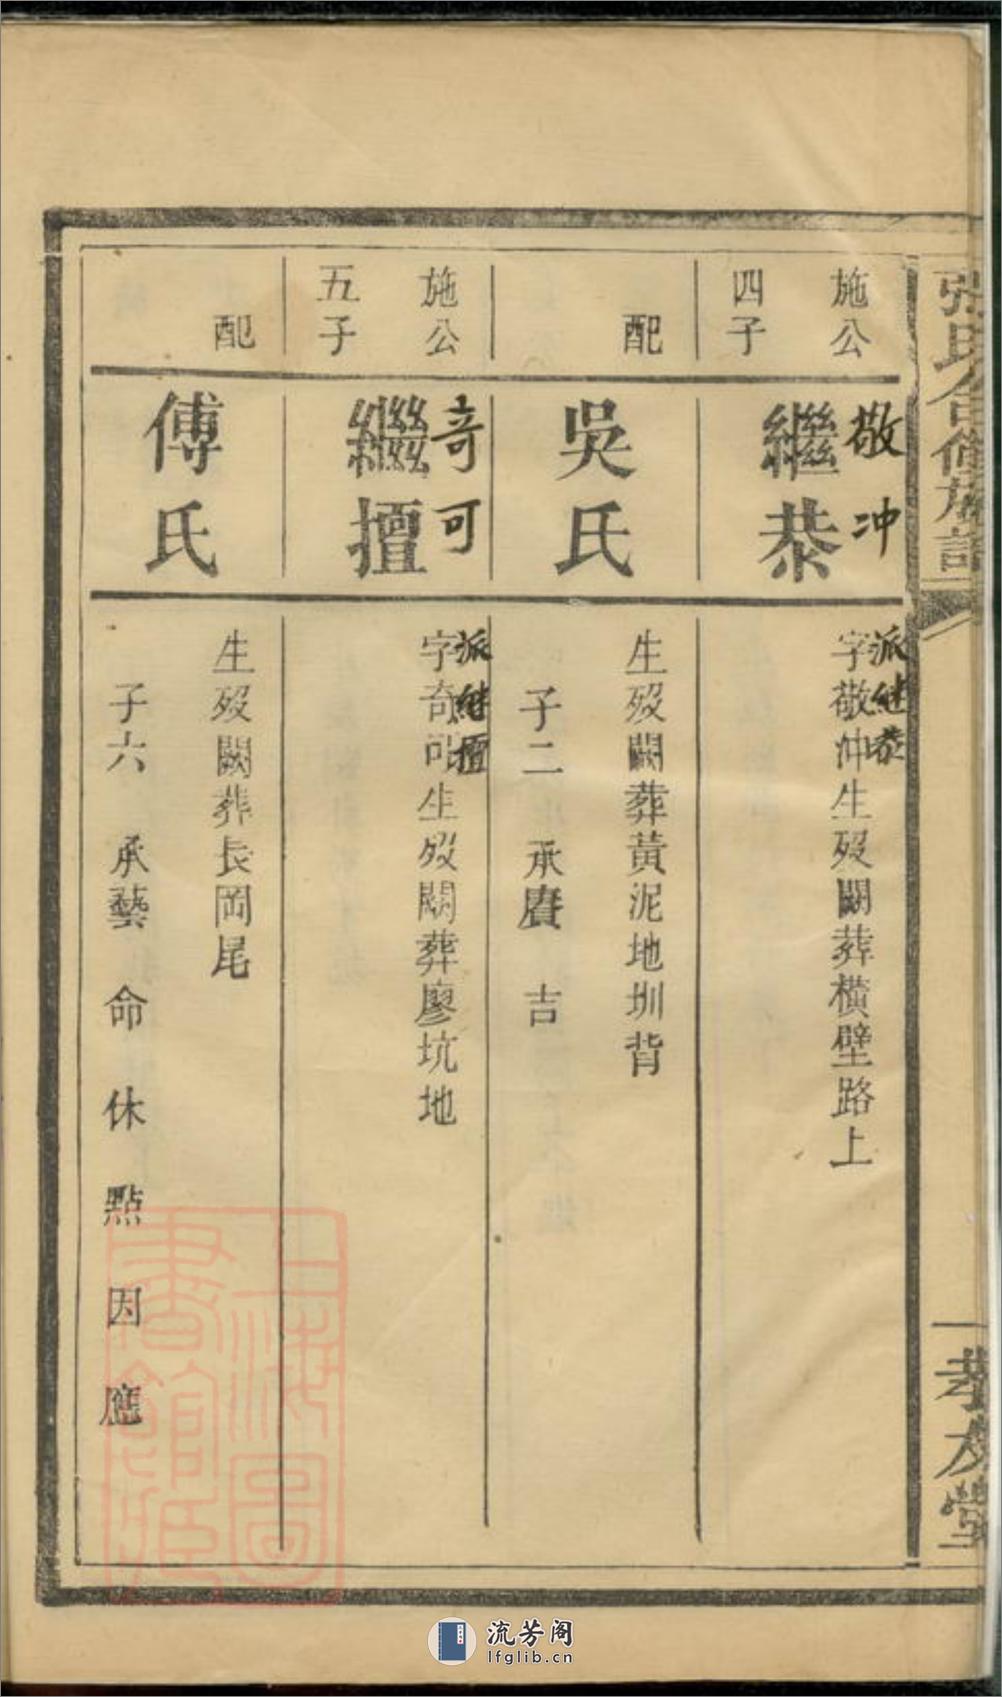 張氏合修族譜
孝友堂
施公
四子
敬冲
繼恭
派継恭
字敬冲生歿闕葬橫壁路上
配
吳氏
生歿闕葬黃泥地圳背
子二 承賡 吉
施公
五子
竒可
繼擅
派継擅
字奇可生歿闕葬廖坑地
配
傅氏
生歿闕葬長岡尾
子六 承藝 命 休 點 因 應
上海圖書館藏
流芳阁
lfglib.cn